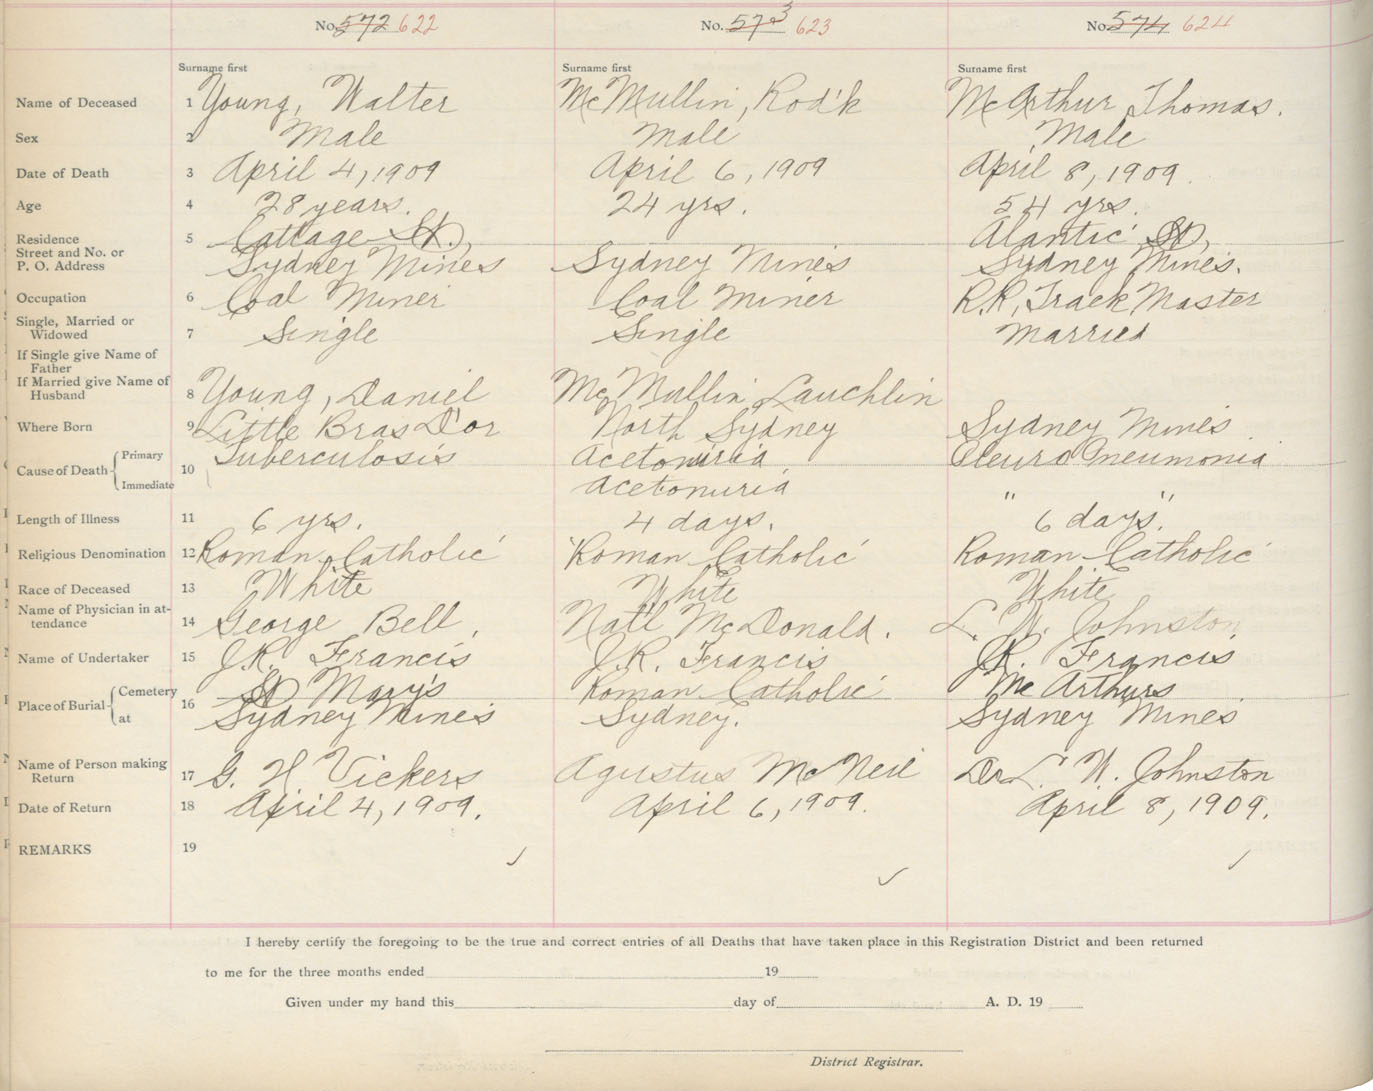 No. 572 622 No. 573 623 No. 574 624
Surname first Surname first Surname first
Name of Deceased 1 Young, Walter McMullin, Rod'k McArthur Thomas.
Sex 2 Male Male Male
Date of Death 3 April 4, 1909 April 6, 1909 April 8, 1909.
Age 4 28 years. 24 yrs. 54 yrs.
Residence 5 Cottage St., Alantic St,
Street and No. or
P. O. Address Sydney Mines Sydney Mines Sydney Mines.
Occupation 6 Coal Miner Coal Miner R.R, Track Master
Single, Married or
Widowed 7 Single Single Married
If Single give Name of
Father
If Married give Name of
Husband 8 Young, Daniel McMullin Lauchlin
Where Born 9 Little Bras D'or North Sydney Sydney Mines
Cause of Death Primary 10 Tuberculosis Acetonuria Pleuro Pneumonia
Immediate Acetonuria " "
Length of Illness 11 6 yrs. 4 days. 6 days.
Religious Denomination 12 Roman Catholic Roman Catholic Roman Catholic
Race of Deceased 13 White White White
Name of Physician in at-
tendance 14 George Bell. Nat'l McDonald. L. W. Johnston
Name of Undertaker 15 J.R. Francis J.R. Francis J.R. Francis
Place of Burial Cemetery 16 St Mary's Roman Catholic McArthurs
at Sydney Mines Sydney. Sydney Mines
Name of Person making
Return 17 G. H Vickers Agustus McNeil Dr L. W. Johnston
Date of Return 18 April 4, 1909. April 6, 1909. April 8, 1909.
REMARKS 19
I hereby certify the foregoing to be the true and correct entries of all Deaths that have taken place in this Registration District and been returned
to me for the three months ended 19
Given under my hand this day of A. D. 19
District Registrar.